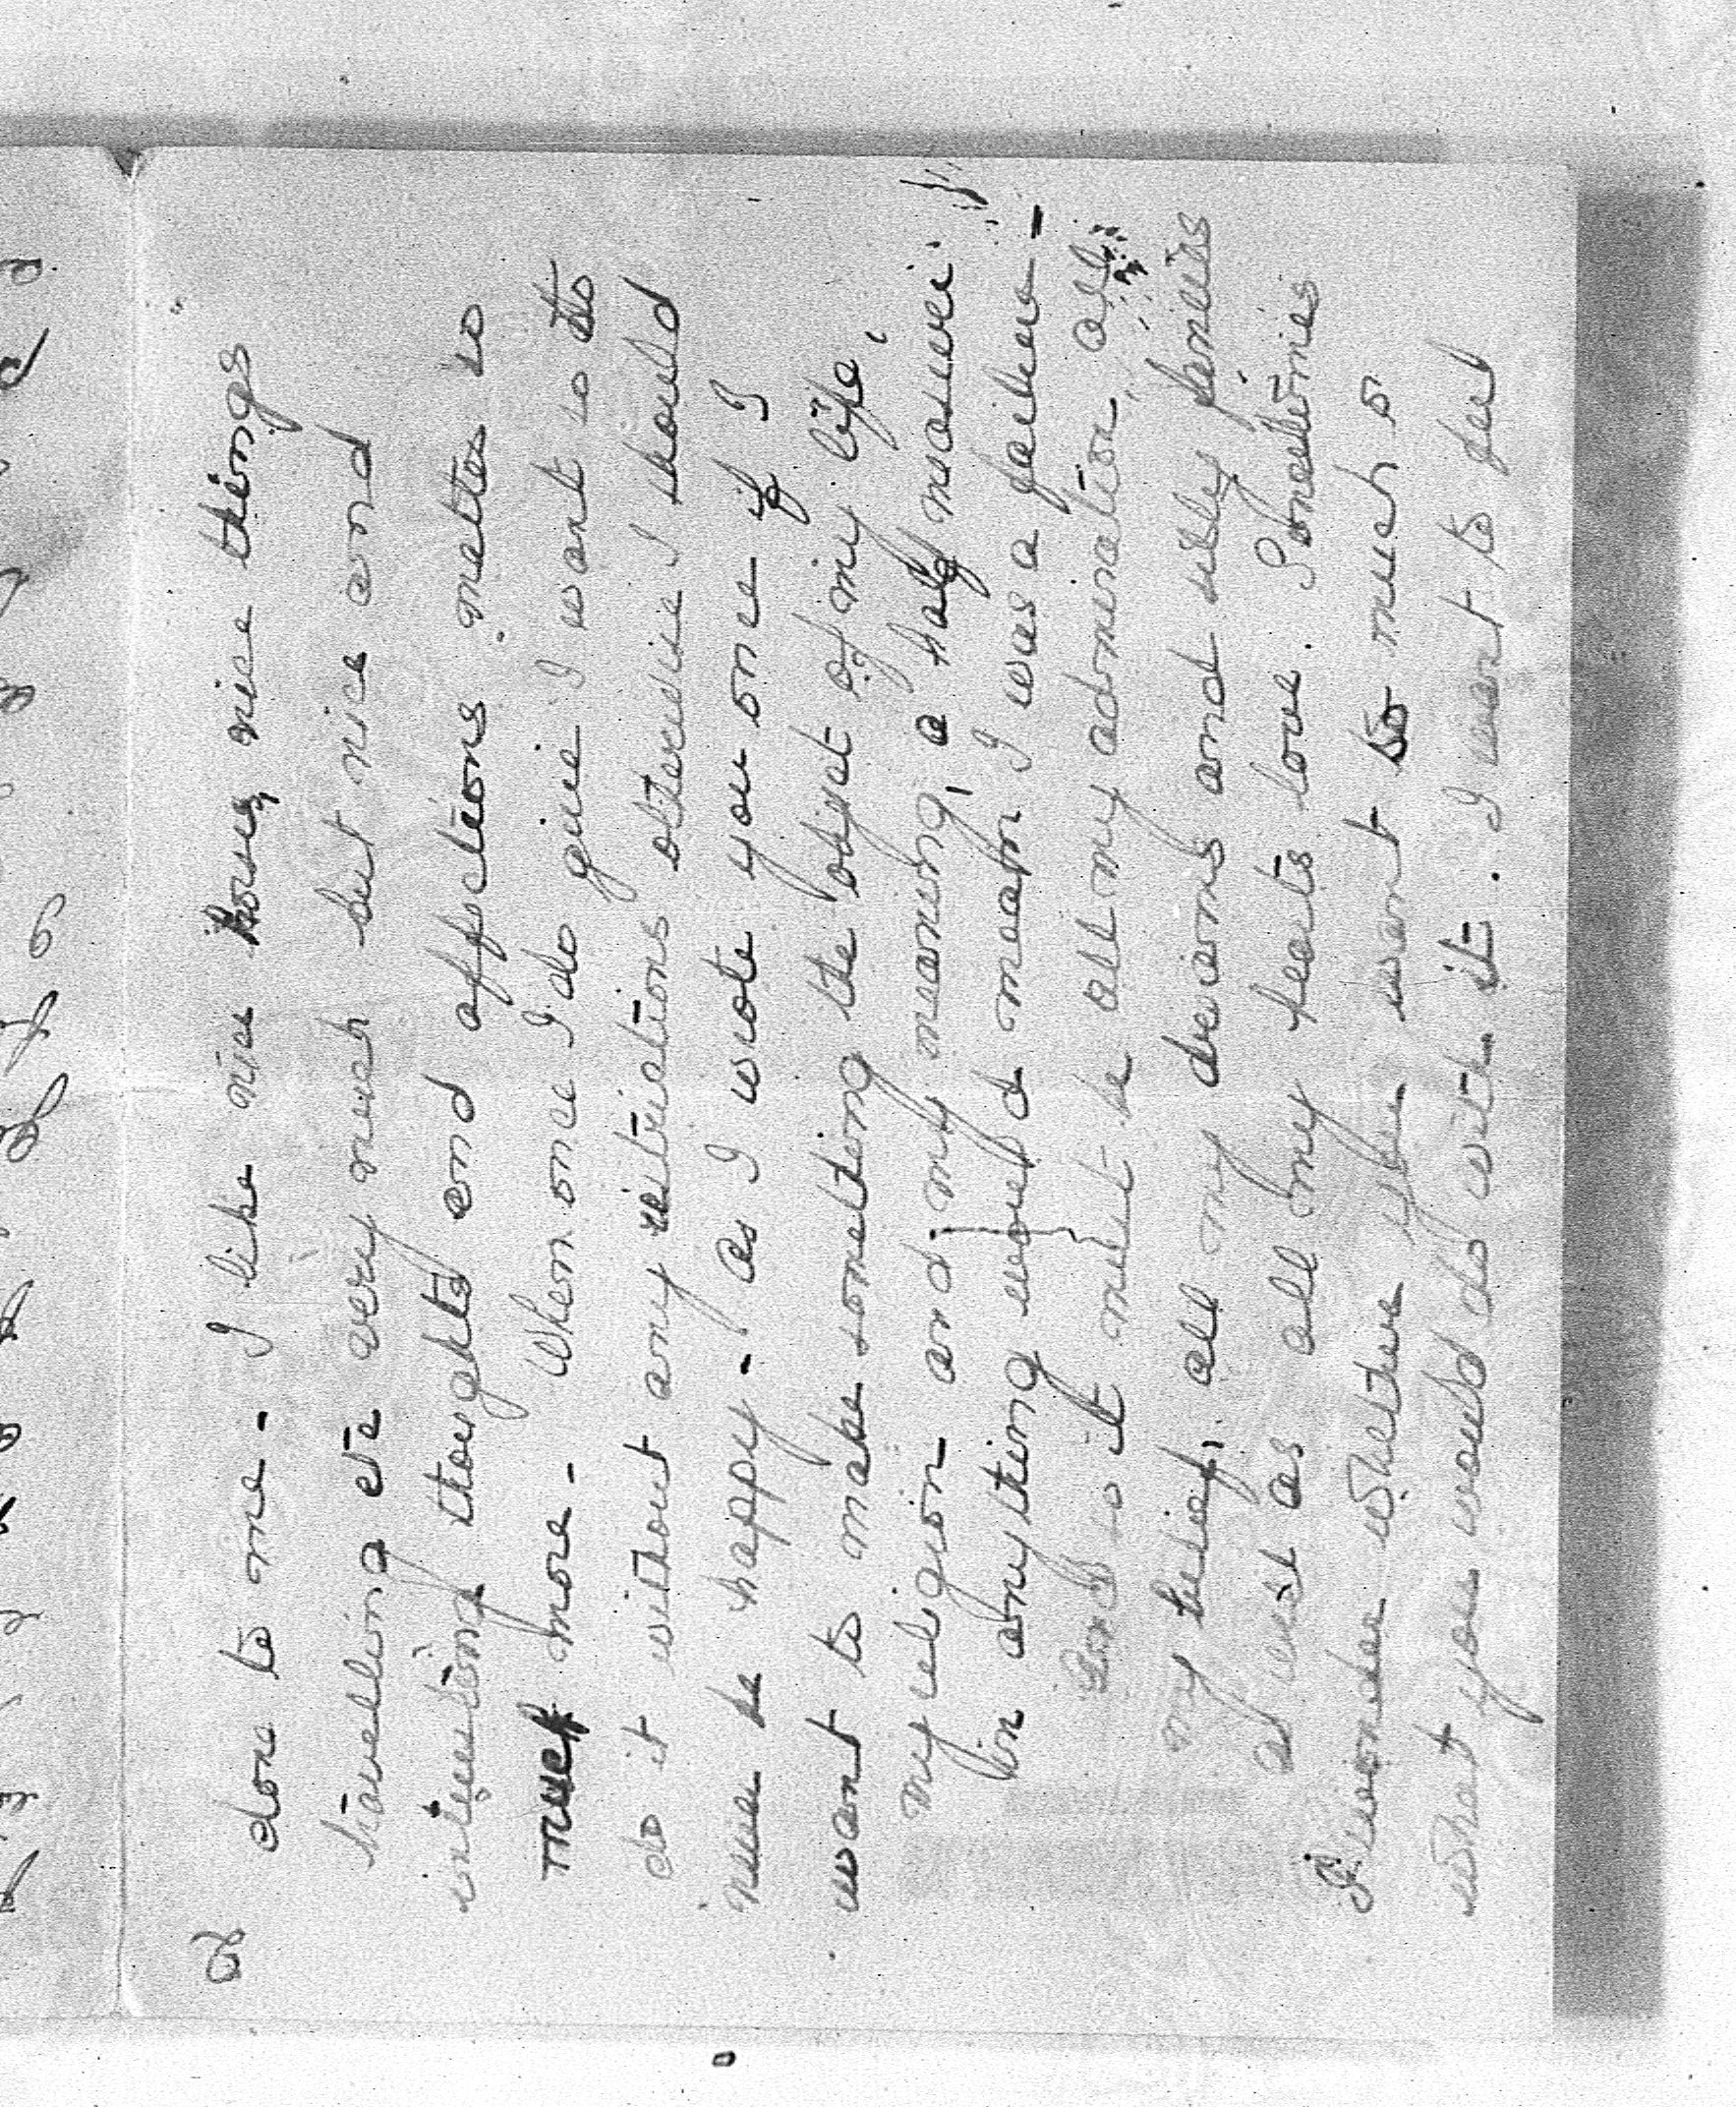 2
done to me - I like nice houses, nice things
travelling etc very much but nice and
interesting thoughts and affections matter so
much more - When once I do give I want to do
do it without any restrictions otherwise I should
never be happy - As I wrote you once if I
want to make something the object of my life,
my religion and my meaning, a half
in anything would mean I was a failure -
God so it must be all my admiration, all
my belief, all my dreams and silly fancies
just as all my hearts love. Sometimes
I wonder whether you want so much or
what you would do with it. I want to feel